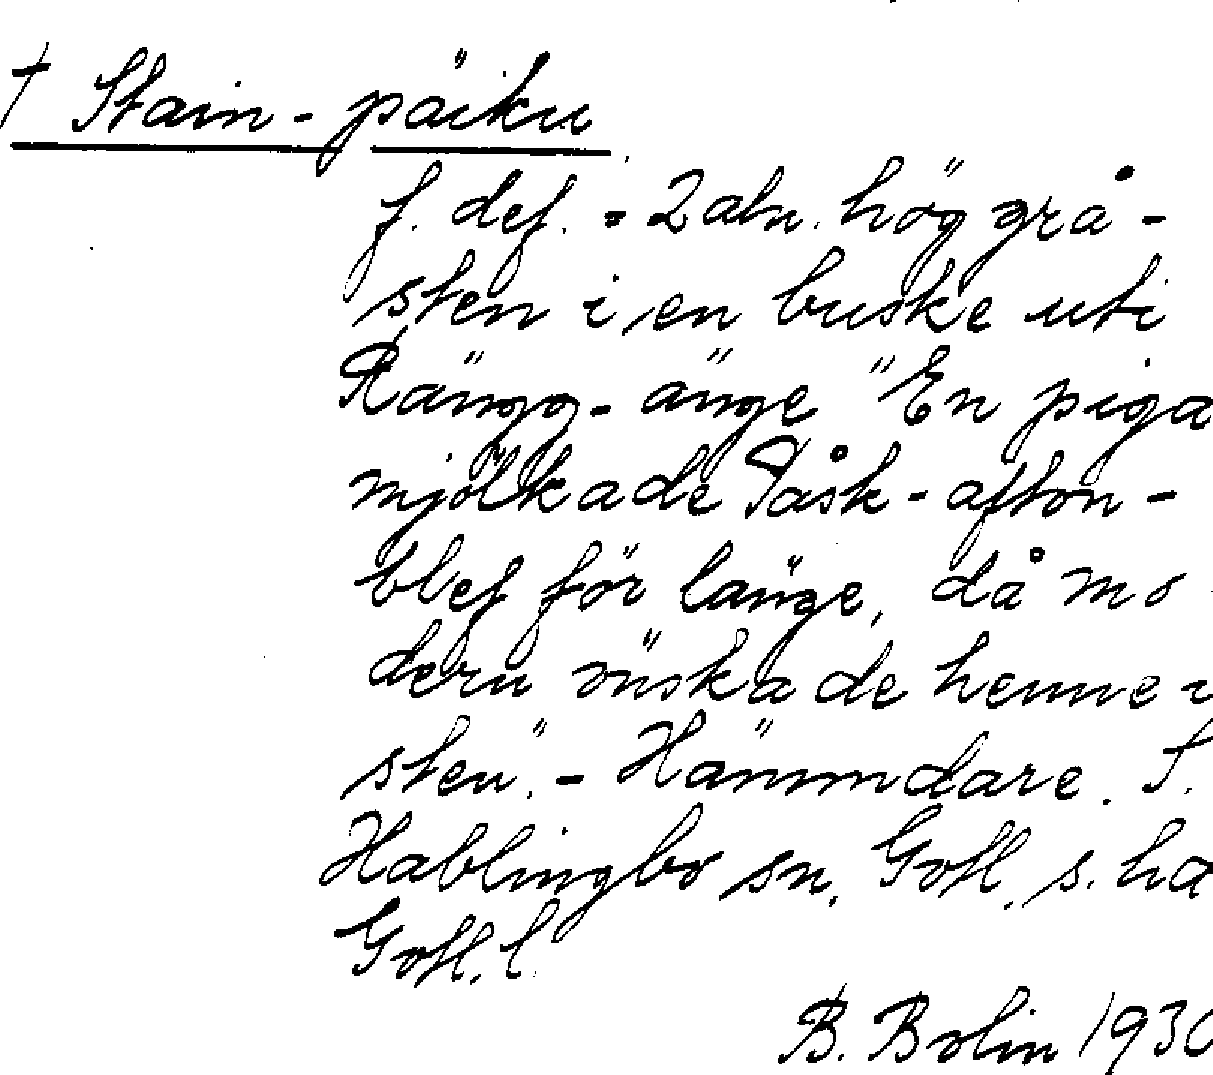 † Stain-päiku
f. def. = 2 aln. hög grå-
sten i en buske uti
Rängg-änge "En piga
mjölkade Påsk-afton-
blef för länge, då mo
dern önskade henne i
sten". - Hämmdare. S.
Hablingbo sn. Gotl. s. ha
Gotl. l.
B. Bolin 1930